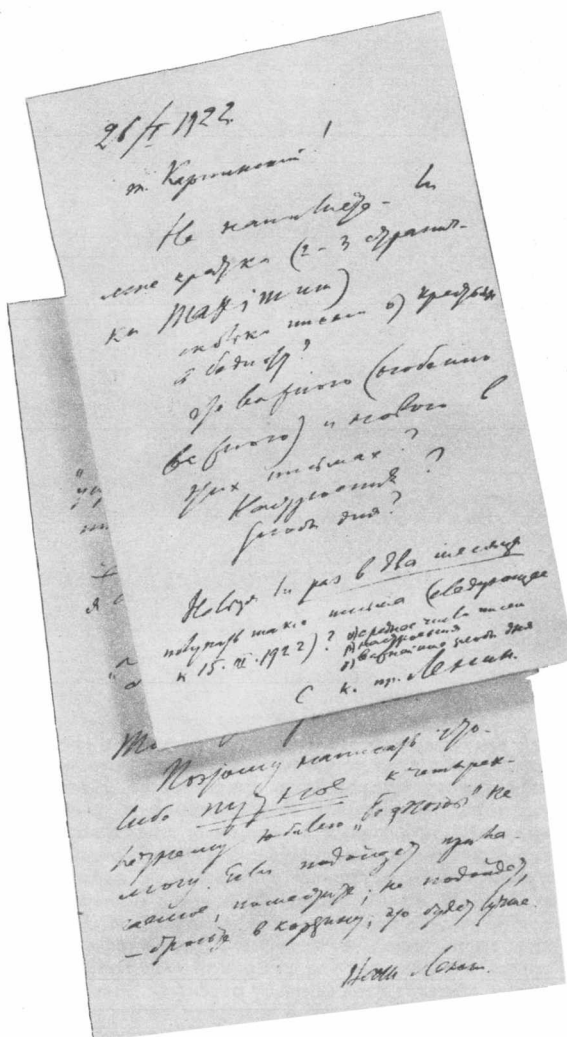 26/I 1922
т. Карпинский!
Не напишете ли
мне кратко (2–3 странич-
ки maximum)
сколько писем от крестьян
в „Бедноту"?
что важного (особенно
важного) и нового в
этих письмах?
Настроения?
Злобы дня?
Нельзя ли раз в два месяца
получать такие письма (следующее
к 15. III. 1922)?
α) среднее число писем
β) настроения
γ) важнейшие злобы дня
С к. пр. Ленин.
Поэтому написать что-
либо путное к четырех-
летнему юбилею „Бедноты" не
могу. Если подойдет прила-
гаемое, поместите; не подойдет,
– бросьте в корзину, это будет лучше.
Ваш Ленин.